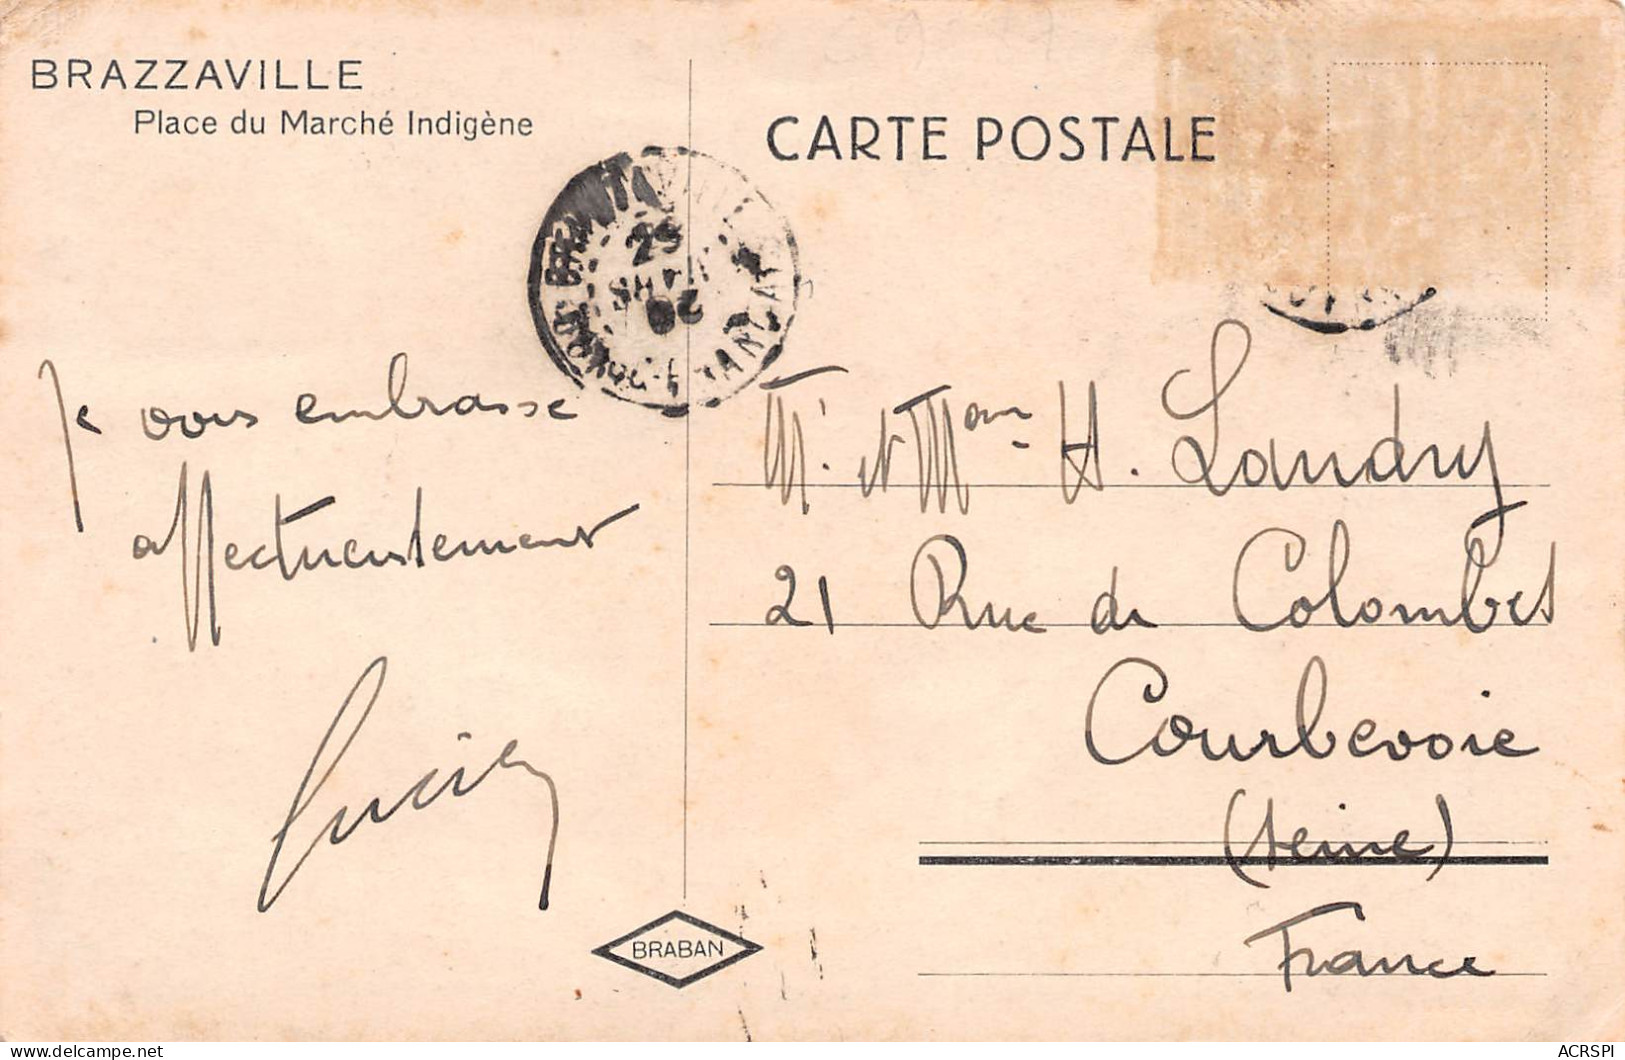 BRAZZAVILLE
Place du Marché Indigène
CARTE POSTALE
25
MARS
Je vous embrasse
affectueusement
Lucien
Mr. et Mme H. Landry
21 Rue de Colombes
Courbevoie
(Seine)
France
BRABAN
delcampe.net
ACRSPI